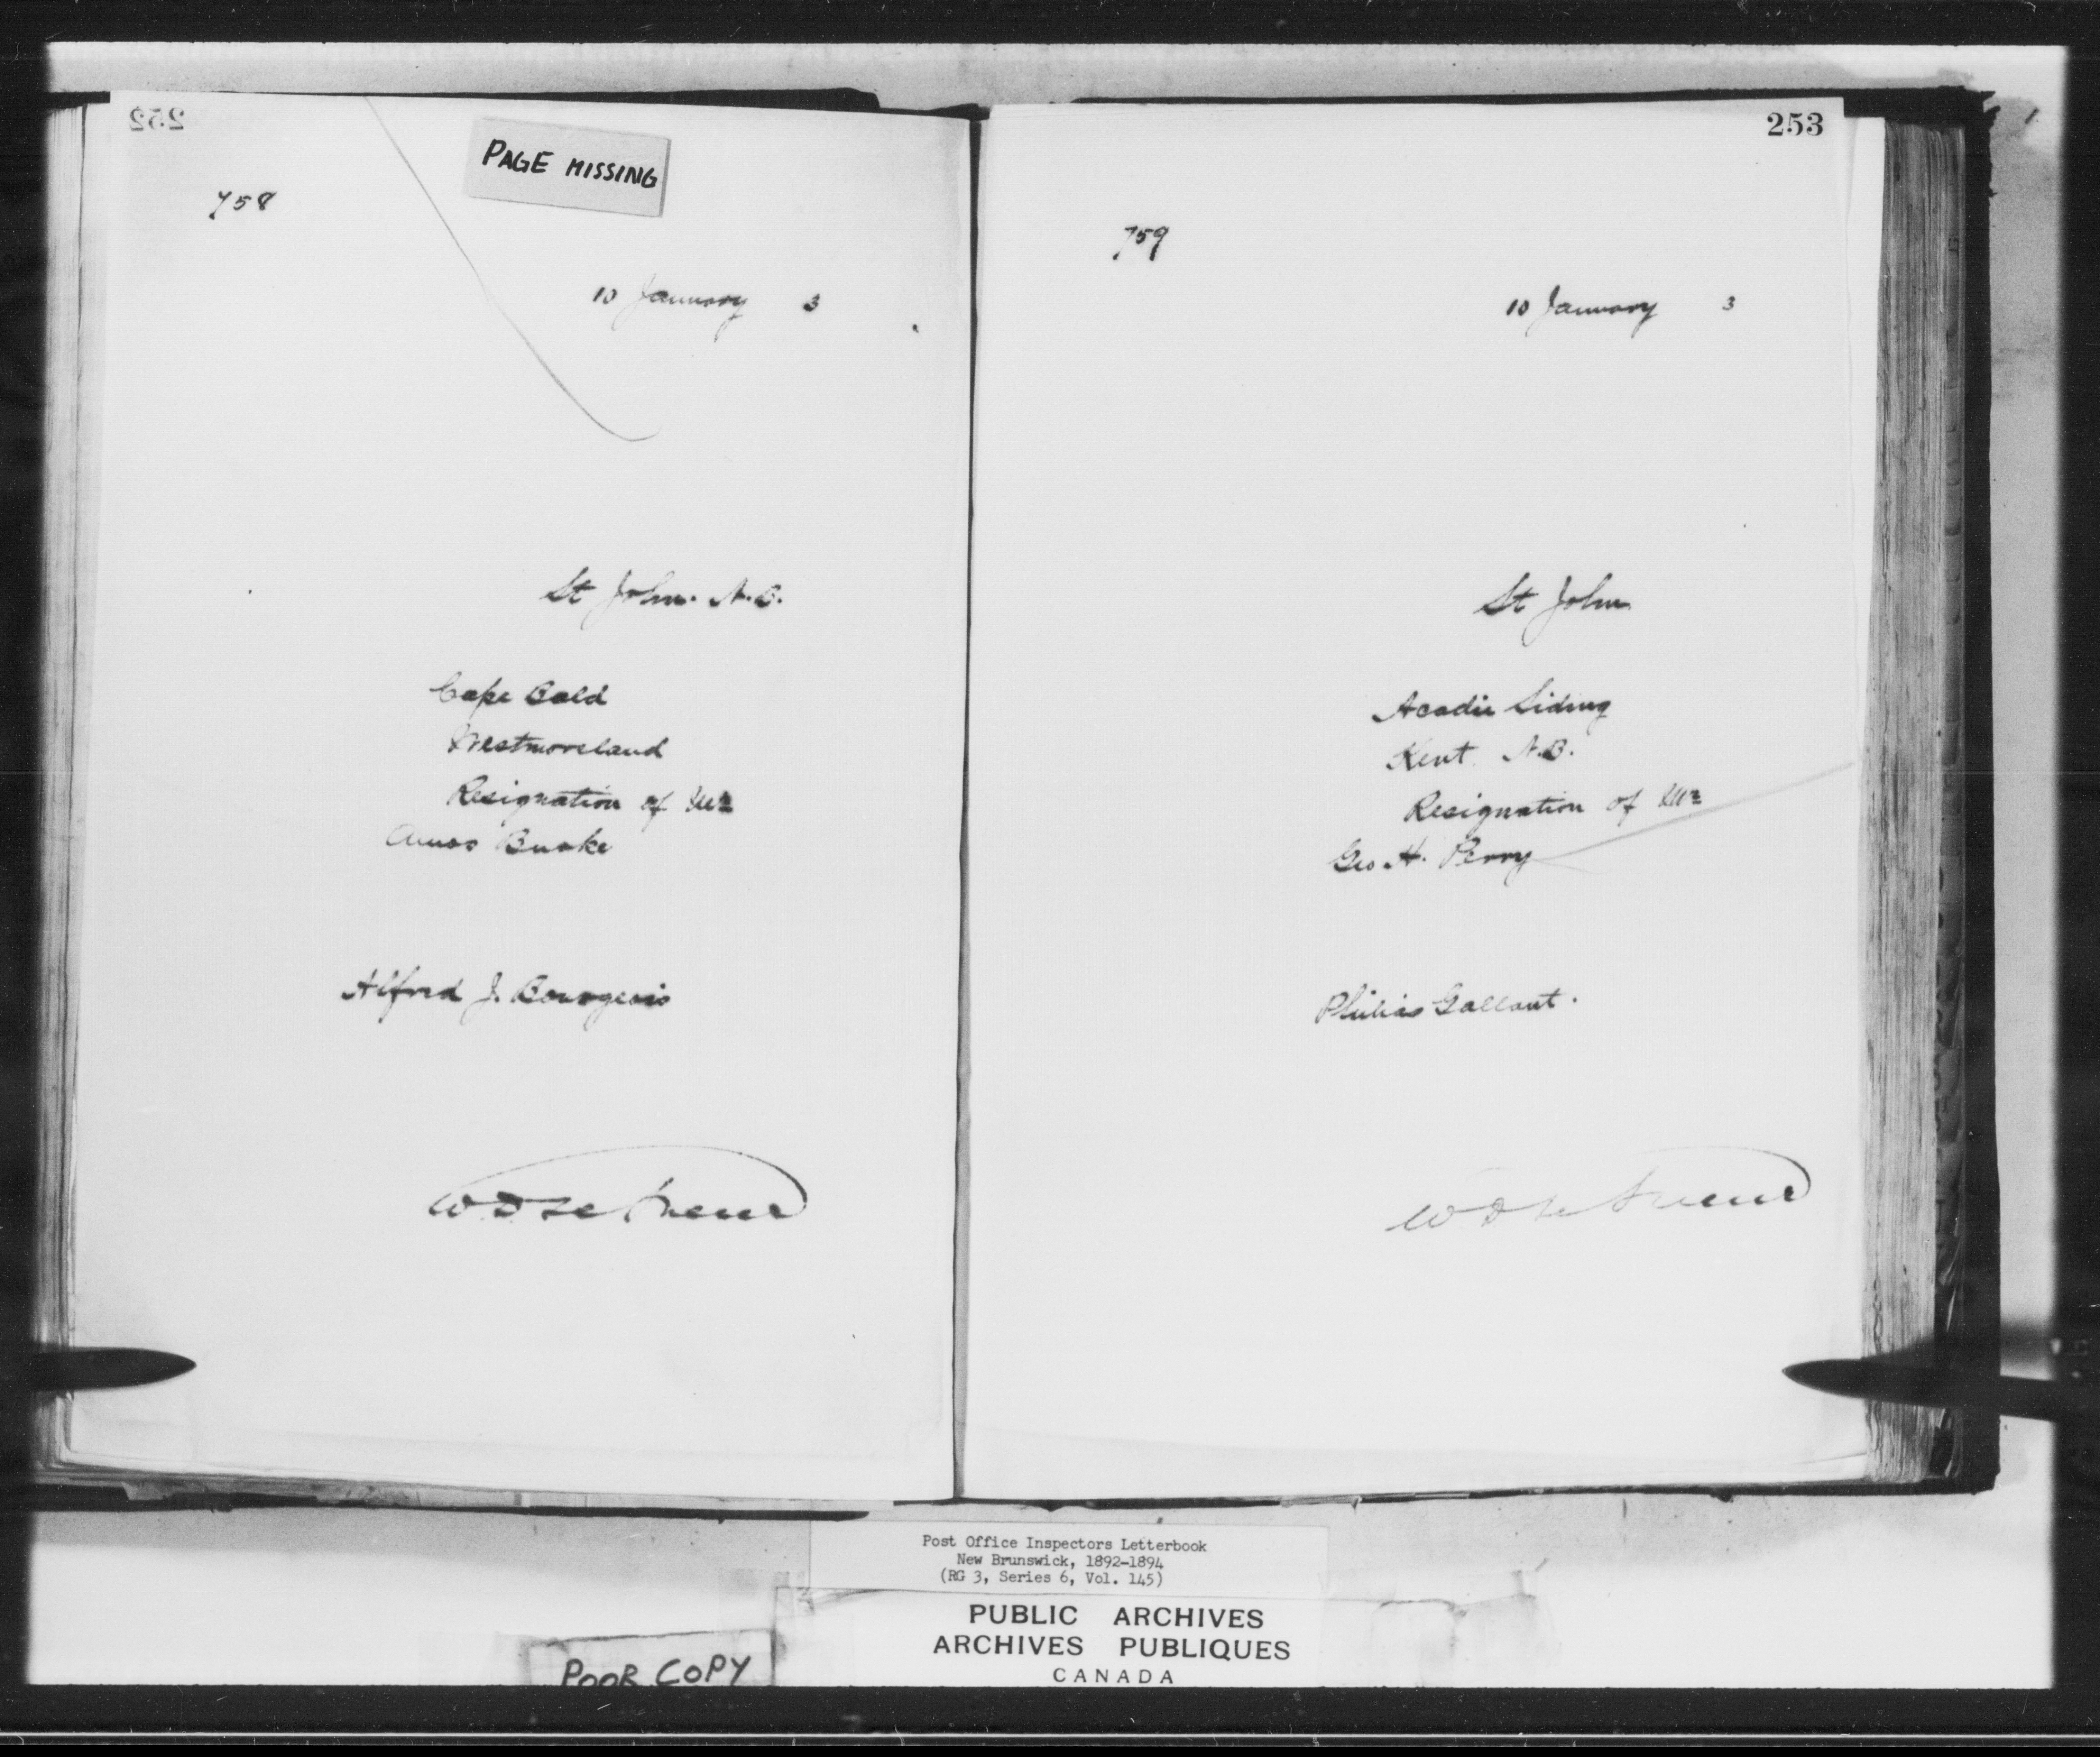 252
PAGE MISSING
758
10 January 3
St John. N.B.
Cape Bald
Westmoreland
Resignation of Mr
Amos Burke
Alfred J. Bourgeois
253
759
10 January 3
St John
Acadie Siding
Kent N.B.
Resignation of Mr
Geo H. Perry
Philias Gallant.
Post Office Inspectors Letterbook
New Brunswick, 1892-1894
(RG 3, Series 6, Vol. 145)
PUBLIC ARCHIVES
ARCHIVES PUBLIQUES
CANADA
POOR COPY